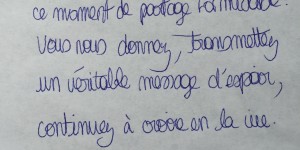 ce moment de partage formidable.
Vous nous donnez, transmettez
un véritable message d'espoir,
continuez à croire en la vie.